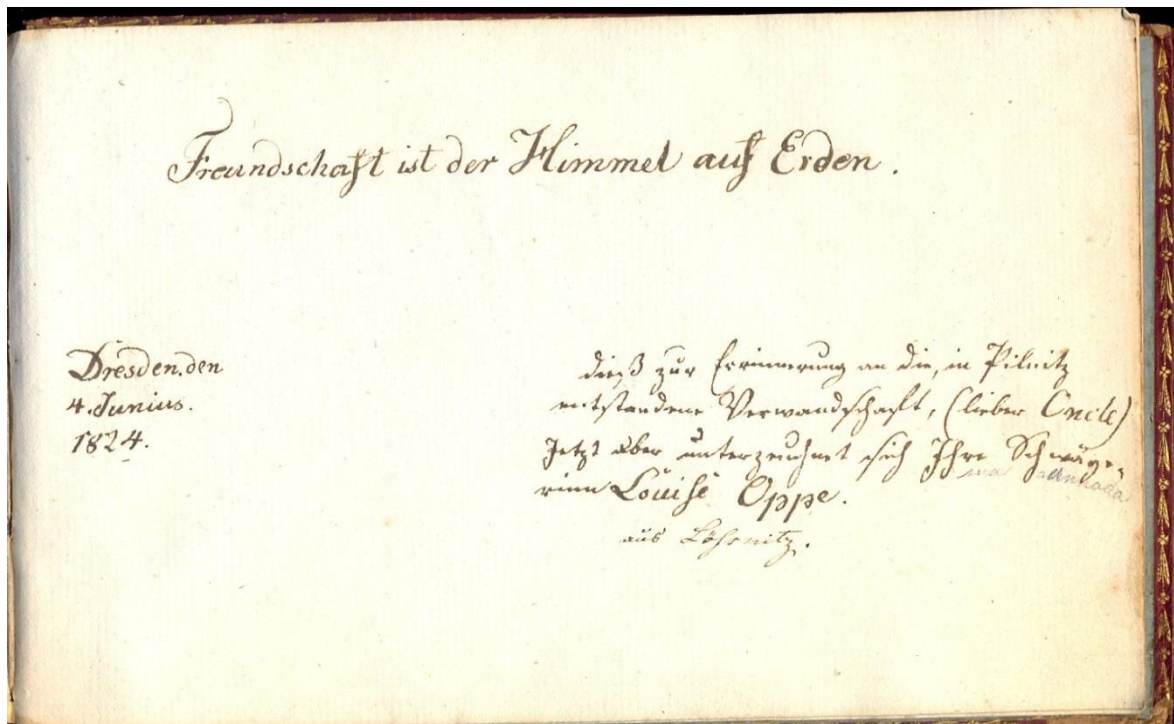 Freundschaft ist der Himmel auf Erden.
Dresden. den
4. Junius.
1824.
dieß zur Erinnerung an die, in Pilnitz
entstandene Verwandschaft, (lieber Oncle)
Jetzt aber unterzeuchnet sich Ihre Schwäge-
rinn Louise Oppe.
aus Lößnitz.